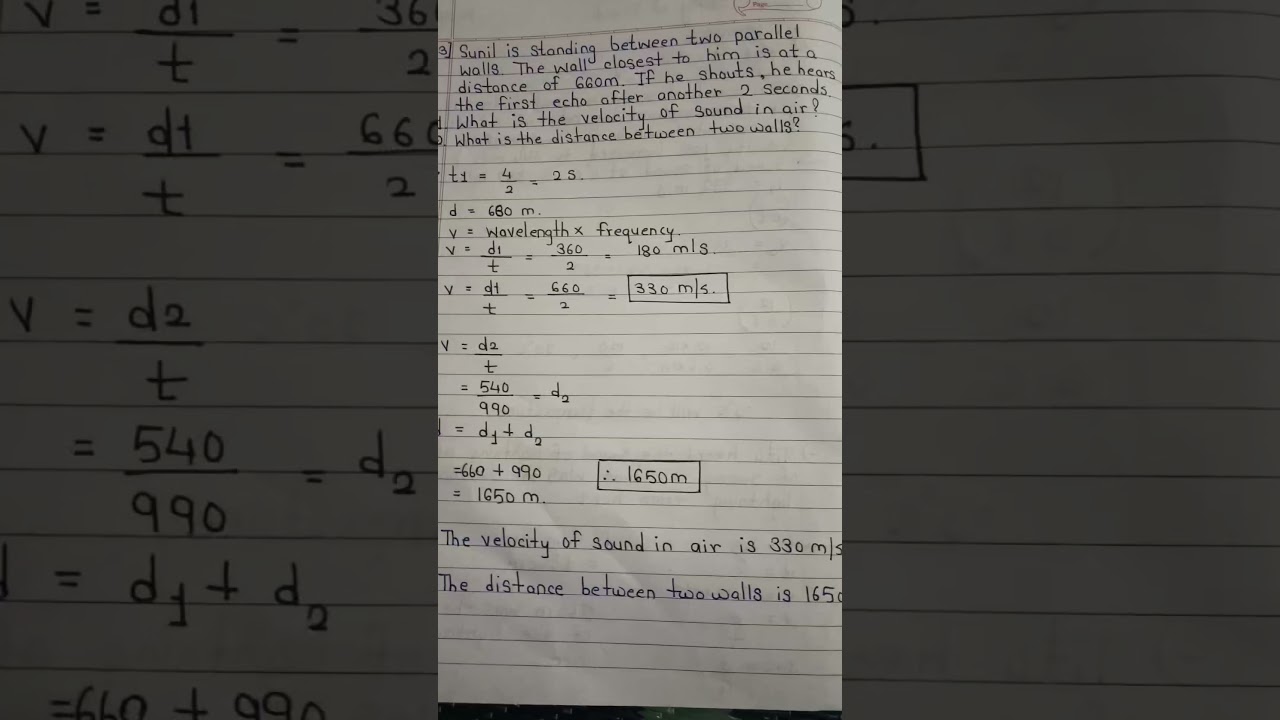 3] Sunil is standing between two parallel
walls. The wall closest to him is at a
distance of 660m. If he shouts, he hears
the first echo after another 2 seconds.
What is the velocity of sound in air?
What is the distance between two walls?
t1 = 4/2 = 2 s.
d = 680 m.
v = wavelength × frequency.
v = d1/t = 360/2 = 180 m/s.
v = d1/t = 660/2 = 330 m/s.
v = d2/t
= 540/990 = d2
= d1 + d2
=660 + 990 ∴ 1650m
= 1650 m.
The velocity of sound in air is 330 m/s
The distance between two walls is 1650
v = d1/t = 36
2
v = d1/t = 660/2
s.
v = d2/t
= 540/990 = d2
= d1 + d2
=660 + 990